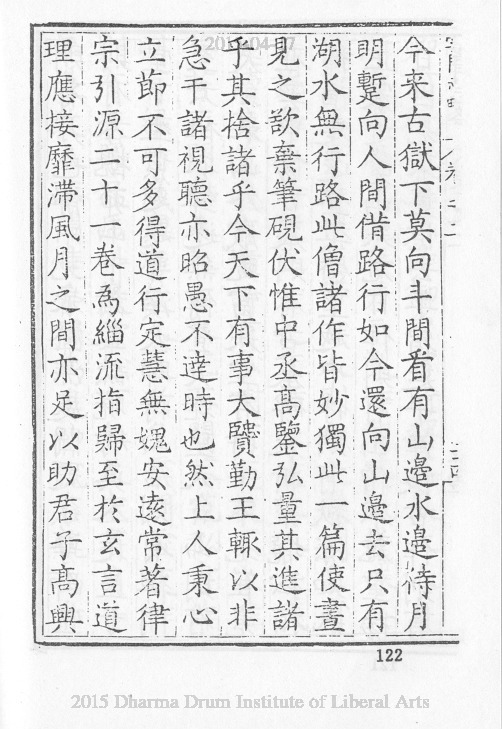 今来古獄下莫向斗間看有山邉水邉待月
明蹔向人間借路行如今還向山邉去只有
湖水無行路此僧諸作皆妙獨此一篇使晝
見之欲棄筆硯伏惟中丞髙鑒弘量其進諸
乎其捨諸乎今天下有事大賢勤王輙以非
急干諸視聽亦昭愚不達時也然上人秉心
立節不可多得道行定慧無媿安逺常著律
宗引源二十一巻為緇流指歸至於玄言道
理應接靡滞風月之間亦足以助君子髙興
122
2015 Dharma Drum Institute of Liberal Arts